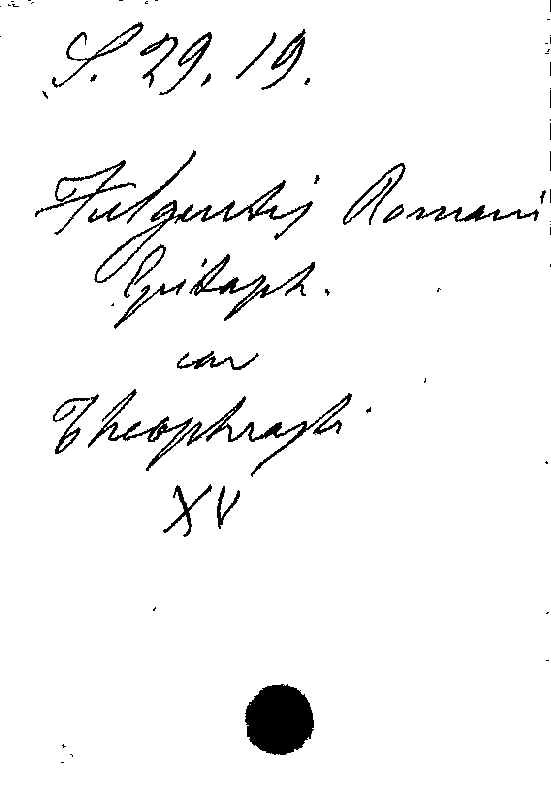 S. 29. 19.
Fulgentij Romani
Epitaph.
car
Theophrasti
XV